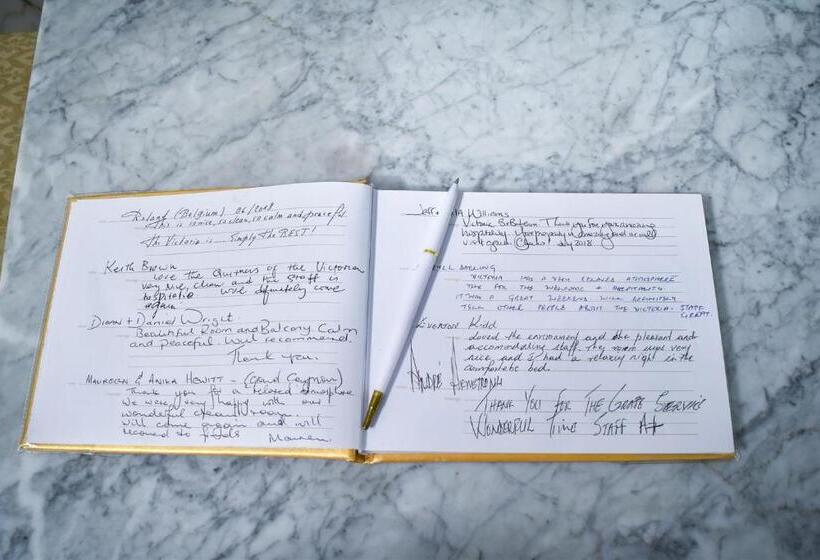 Roland (Belgium) 06/2018
This is so nice, so clean, so calm and peaceful.
The Victoria is Simply the BEST!
Keith Brown
Love the Quitness of the Victoria
very nice, clean and the staff is
hospitable will definitely come
again
Diann + Daniel Wright.
Beautiful Room and Balcony Calm
and peaceful. Will recommend.
Thank you.
Maureen & Anika Hewitt - (Grand Cayman)
Thank you for a relaxed atmosphere
We were very happy with our
wonderful clean room.
will come again and will
recomend to friends
Maureen
Williams
Victoria Thank you for your amazing
hospitality. Your property is amazing and we will
visit again July 2018
VICTORIA HAS A VERY RELAXED ATMOSPHERE
FOR THE WELCOME + HOSPITALITY.
IT WAS A GREAT WEEKEND WILL DEFINITELY
TELL OTHER PEOPLE ABOUT THE VICTORIA. STAFF
GREAT.
Everton Kidd
Loved the enviroment and the pleasant and
accommodating staff. The room was very
nice and I had a relaxing night in the
comfortable bed.
André Armstrong
THANK YOU FOR THE GREAT SERVICE
WONDERFUL Time STAFF A+